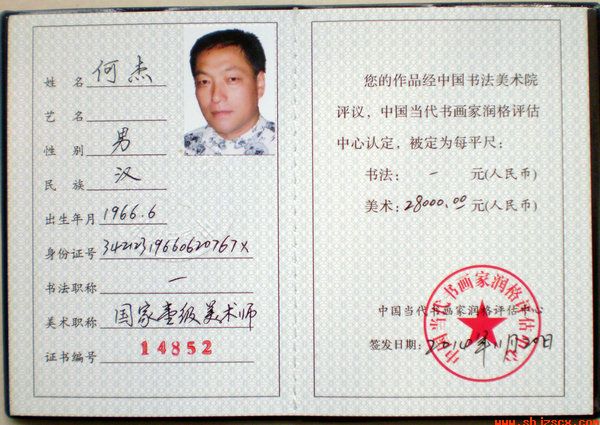 姓 名 何杰
艺 名
性 别 男
民 族 汉
出生年月 1966.6
身份证号 34212319660620767X
书法职称 一
美术职称 国家壹级美术师
证书编号 14852
您的作品经中国书法美术院
评议，中国当代书画家润格评估
中心认定，被定为每平尺：
书法： 一 元(人民币)
美术：28000.00 元(人民币)
中国当代书画家润格评估中心
签发日期：2010年11月30日
中国当代书画家润格评估中心
www.shjzscx.com